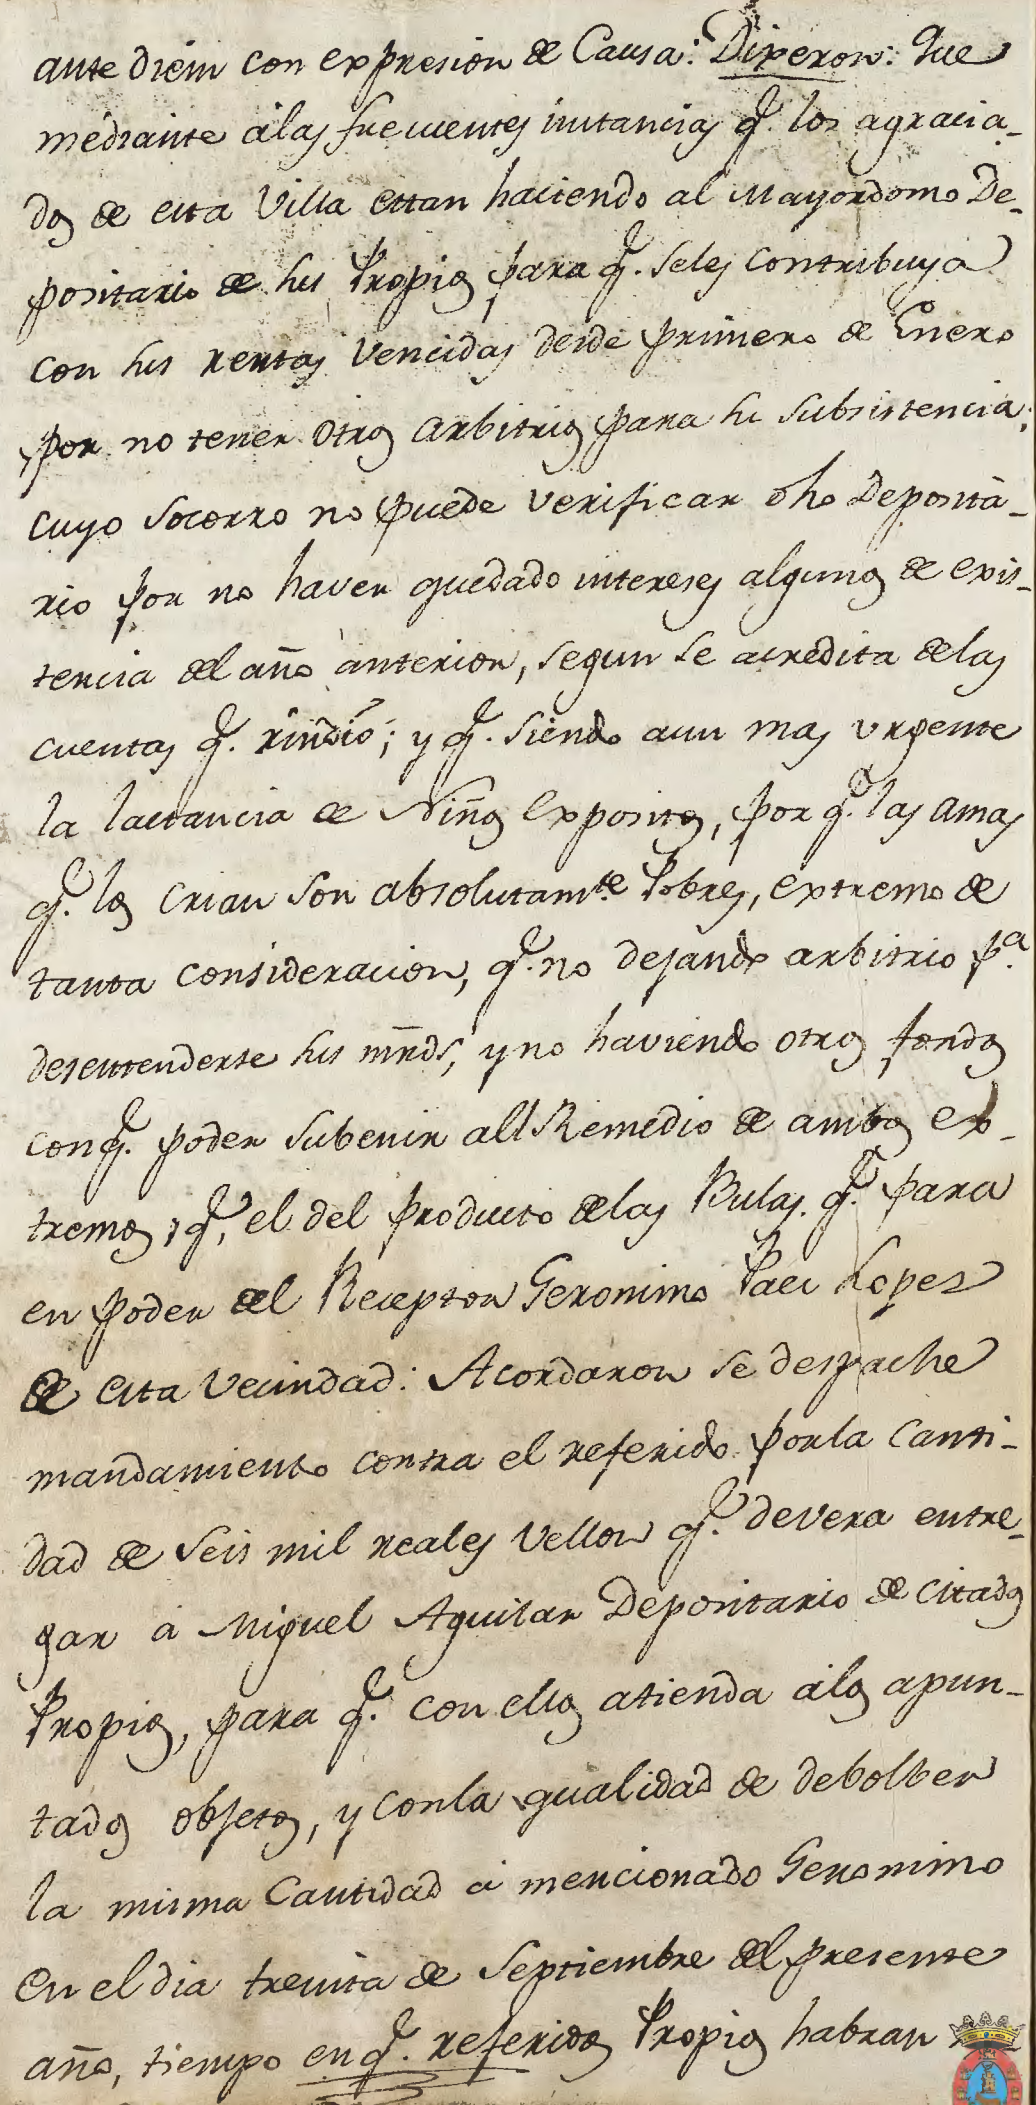 ante diem con expresion de Causa: Dixeron: Que
mediante álas frecuentes instancias q.ͤ los agracia-
dos de esta Villa estan haciendo al Mayordomo De-
positario de sus Propios para q.ͤ seles contribuya
con sus rentas vencidas desde primero de Enero
por no tener otros arbitrios para su subsistencia;
cuyo socorro no puede verificar dho Deposita-
rio por no haver quedado intereses algunos de exis-
tencia del año anterior, segun se acredita delas
cuentas q.ͤ rindió; y q.ͤ siendo aun mas urgente
la lactancia de Niños Expositos, por q.ͤ las amas
q.ͤ los crian son absolutam.te Pobres, extremo de
tanta consideracion, q.ͤ no dejando arbitrio p.ª
desentenderse sus mrds, y no haviendo otros fondos
conq.ͤ poder subenir all Remedio de ambos ex-
tremos, q.ͤ el del producto delas Bulas q.ͤ para
en poder del Receptor Geronimo Paez Lopez
de esta Vecindad: Acordaron se despache
mandamiento contra el referido porla canti-
dad de seis mil reales vellon q.ͤ devera entre-
gar á Miguel Aguilar Depositario de citados
Propios, para q.ͤ con ellos atienda álos apun-
tados objetos, y conla qualidad de debolber
la misma Cantidad á mencionado Geronimo
en el dia treinta de Septiembre del presente
año, tiempo en q.ͤ referidos Propios habran